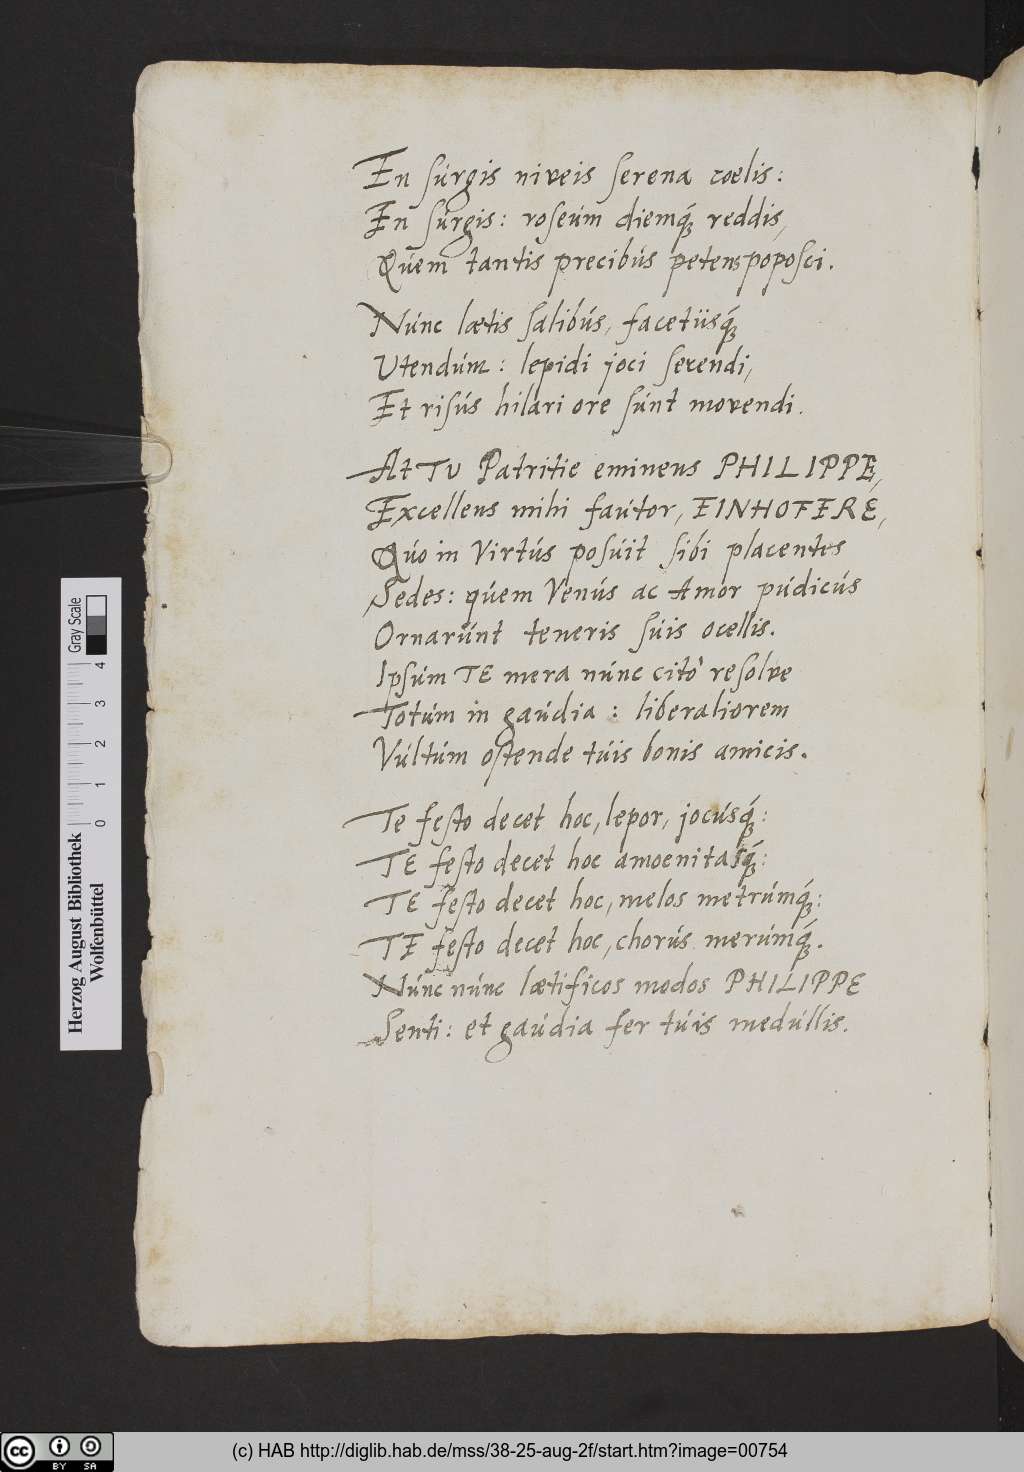 En súrgis niveis serena coelis:
En súrgis: roseúm diemq́ꝫ reddis,
Qúem tantis precibús petens poposci.
Núnc lætis salibús, facetiisq́ꝫ
Utendúm: lepidi joci serendi,
Et risús hilari ore súnt movendi.
At TU Patritie eminens PHILIPPE,
Excellens mihi faútor, EINHOFERE,
Qúo in Virtús posúit sibi placentes
Sedes: qúem Venús ac Amor púdicús
Ornarúnt teneris súis ocellis.
Ipsúm TE mera núnc citò resolve
Totúm in gaúdia: liberaliorem
Vúltúm ostende túis bonis amicis.
Te festo decet hoc, lepor, jocúsq́ꝫ:
TE festo decet hoc amoenitasq́ꝫ:
TE festo decet hoc, melos metrúmq́ꝫ:
TE festo decet hoc, chorús merúmq́ꝫ.
Núnc núnc lætificos modos PHILIPPE
Senti: et gaúdia fer túis medúllis.
Herzog August Bibliothek
Wolfenbüttel
0 1 2 3 4
Gray Scale
cc BY SA
(c) HAB http://diglib.hab.de/mss/38-25-aug-2f/start.htm?image=00754